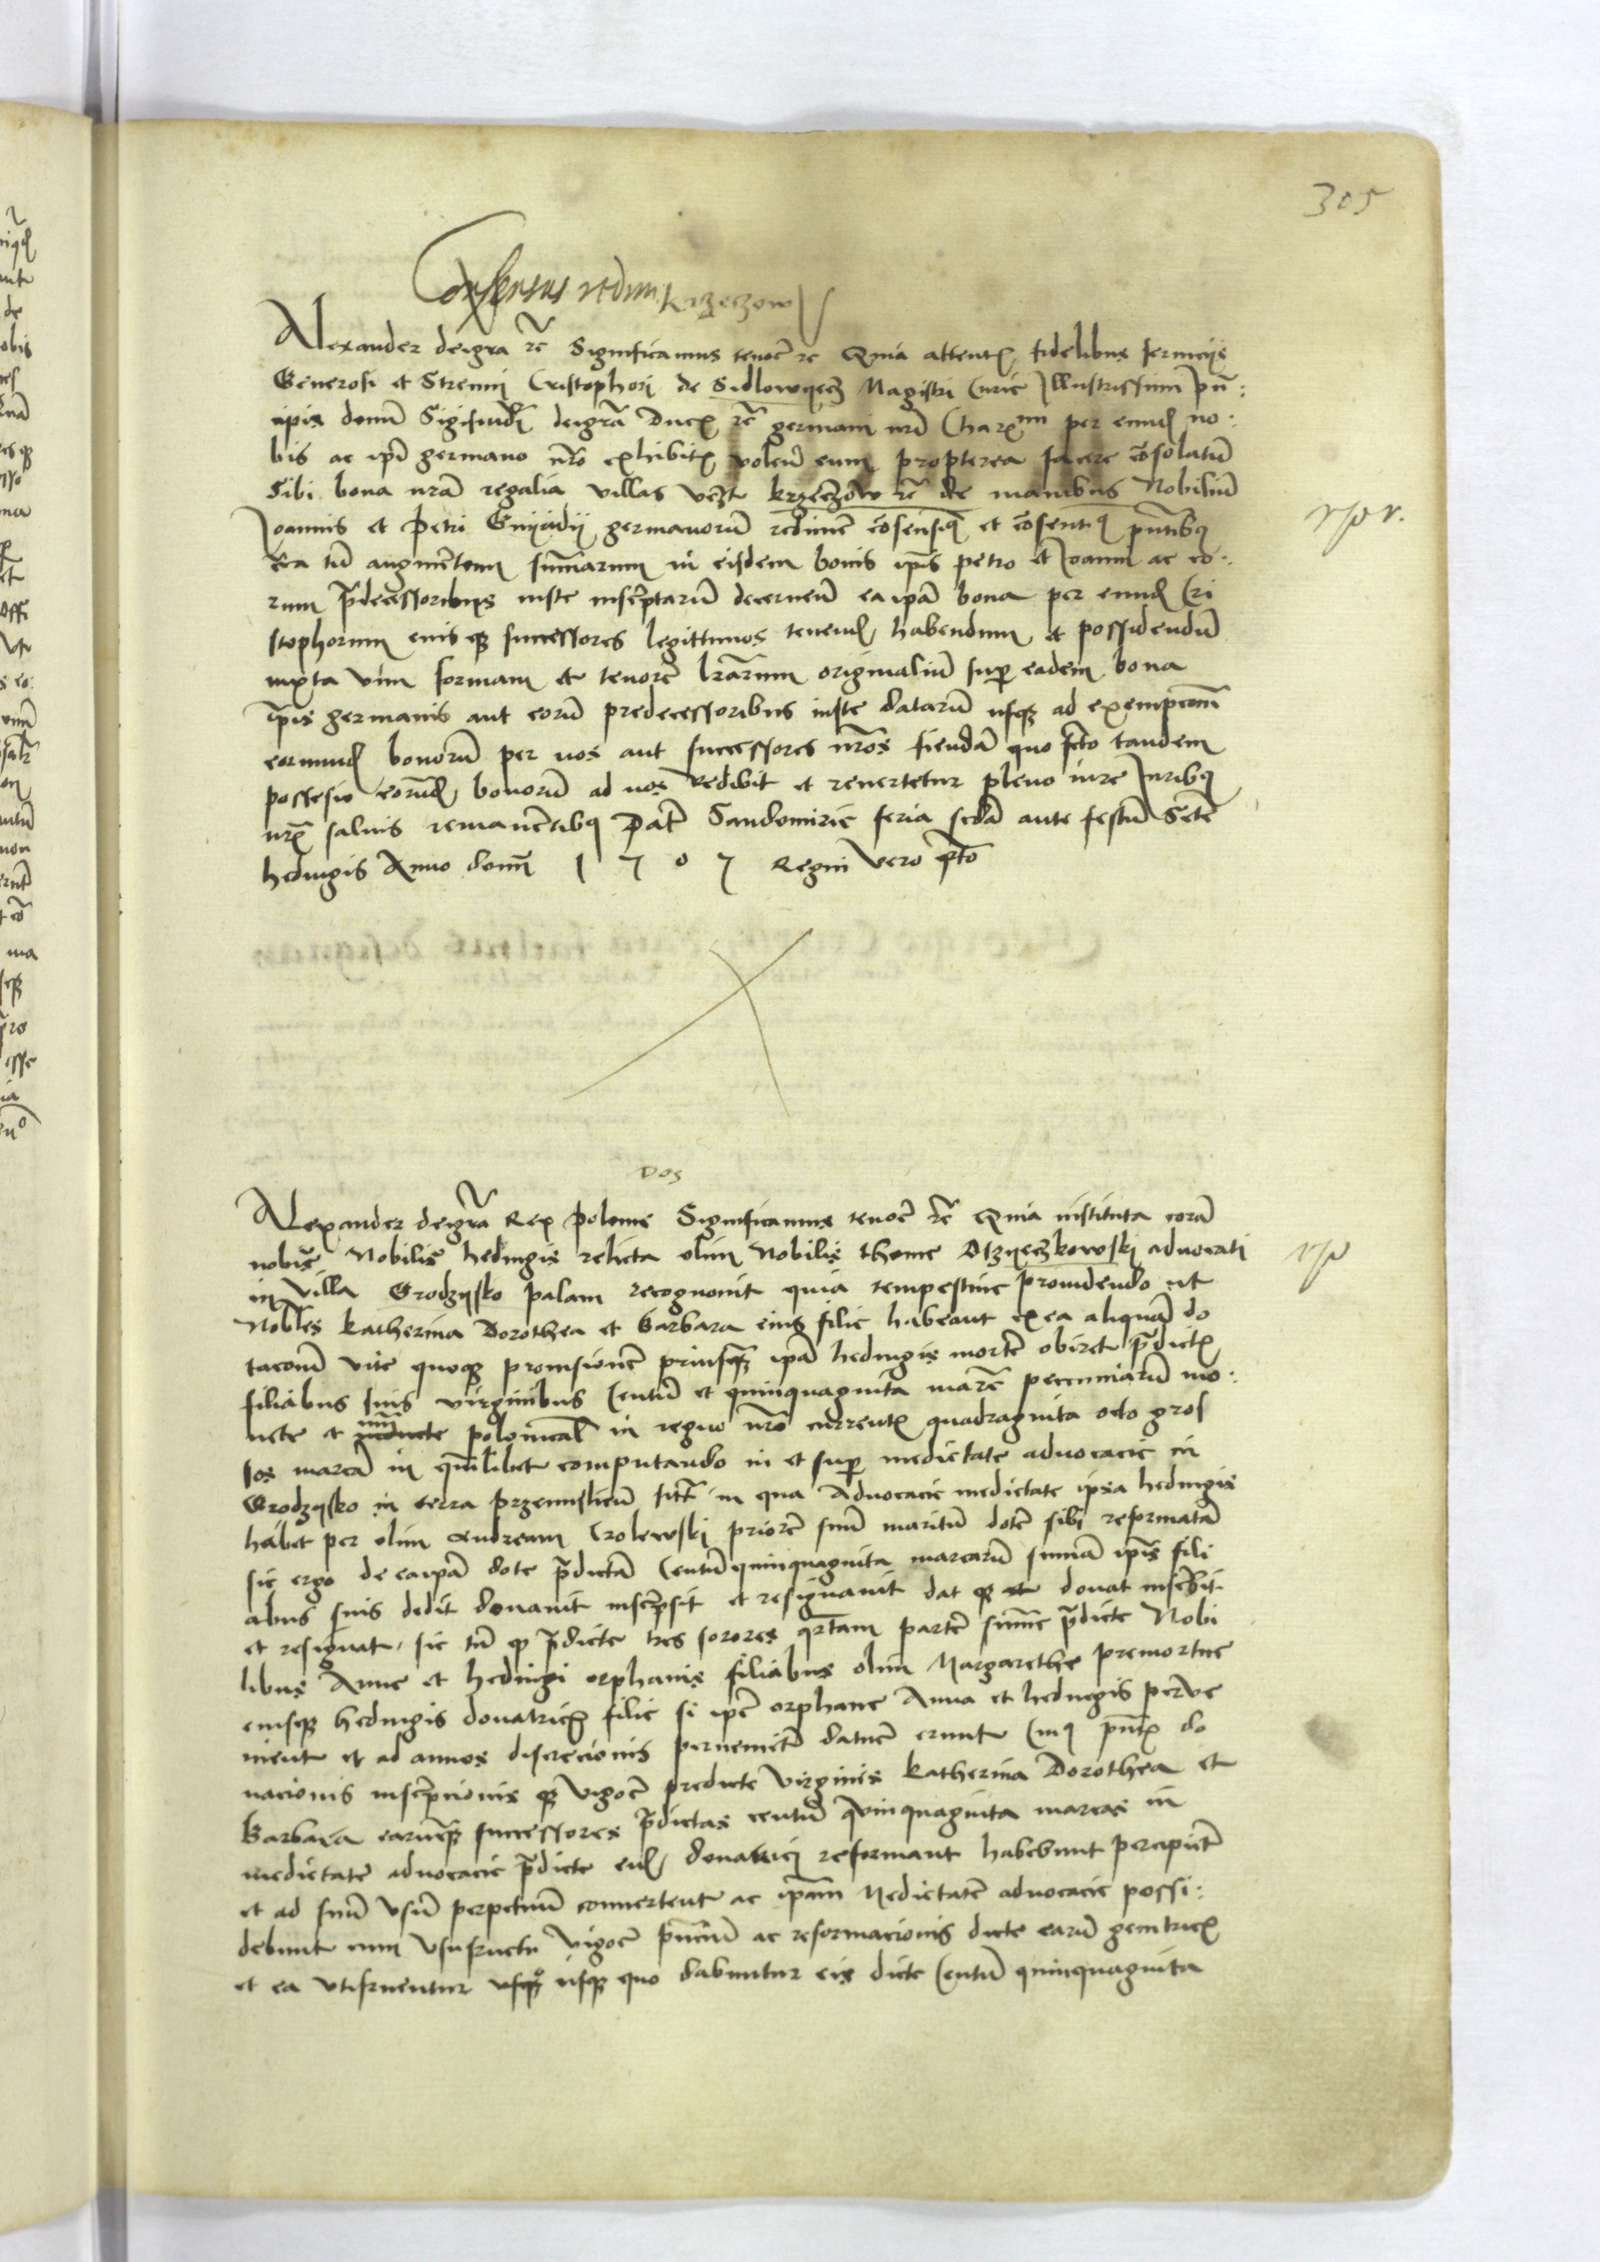 305
Consensus redimi Krzeczow
Alexander deigra rc Significamus tenor rc Quia attentis fidelibus servicijs
Generosi et Strenui Cristophori de Sidlowyecz Magistri Curie Illustrissimi prin:
cipis domi Sigismudi deigra Ducis rc germani nri Charmi per eund no:
bis ac ipi germano nro exhibitis volen eum propterea facere cosolatu
Sibi bona nra regalia villas vcz Krzeczow rc de manibus Nobiliu
Joannis et Petri Gnyadij germanoru redimere cosensimus et cosentimus pntibus
tu augmentom summarum in eisdem bonis ipis petro et Joanni ac eo:
rum predecessoribus iuste inscriptaru decernen ea ipa bona per eund Cri
stophorum eius qz successores legittimos tenend habendum et possidendu
iuxta vim formam et tenore lrarum originaliu sup eadem bona
ipis germanis aut eoru predecessoribus iuste dataru usqz ad exempcom
eorund bonoru per nos aut successores nros fienda quo fcto tandem
possessio eorund bonoru ad nos redibit et revertetur pleno iure Juribus
nris salvis remanentibus Dat Sandomirie feria scda ante festu Scte
hedvigis Anno domi 1 5 0 5 Regni vero qrto
Dos
Alexander deigra Rex Polonie Significamus tenor rc Quia instituta cora
nobis Nobilis hedvigis relicta olim Nobilis thome Dzyeczkowski advocati
in villa Grodzysko palam recognovit quia tempestive providendo ut
Nobles Katherina Dorothea et Barbara eius filie habeant ex ea aliqua do
tacom vite quoqz provisione priusqz ipa hedvigis morte obiret predictis
filiabus suis virginibus Centu et quinquaginta marc pecuniaru mo:
nete et nui polonical in regno nro currentis quadraginta octo gros
sos marca in qmlibet computando in et sup medietate advocacie in
Grodzysko in terra przemislien sit in qua Advocacie medietate ipsa hedvigis
habet per olim Andream Crolewski priore suu maritu dote sibi reformata
sic ergo de ea ipa dote predicta Centu quinquaginta marcaru suma ipis fili
abus suis dedit donavit inscripsit et resignavit dat qz donat inscribit
et resignat sic tn qz predicte tres sorores qrtam parte summe predicte Nobi
libus Anne et hedvigi orphanis filiabus olim Margarethe premortue
eiusqz hedvigis donatricis filie si ipe orphane Anna et hedvigis perve
nient et ad annos discrecionis pervenient dature erunt Cuius pntis do
nacionis inscripcionis qz vigore predicte virginis Katherina Dorothea et
Barbara earumqz successores predictas centu quinquaginta marcas in
medietate advocacie predicte eid donatrici reformant habebunt percipient
et ad suu usu perpetuu convertent ac ipam Medietate advocacie possi:
debunt cum usufructu vigore pnciu ac reformacionis dicte earu genitricis
et ea utifruentur usqz quo dabuntur eis dicte Centu quinquaginta